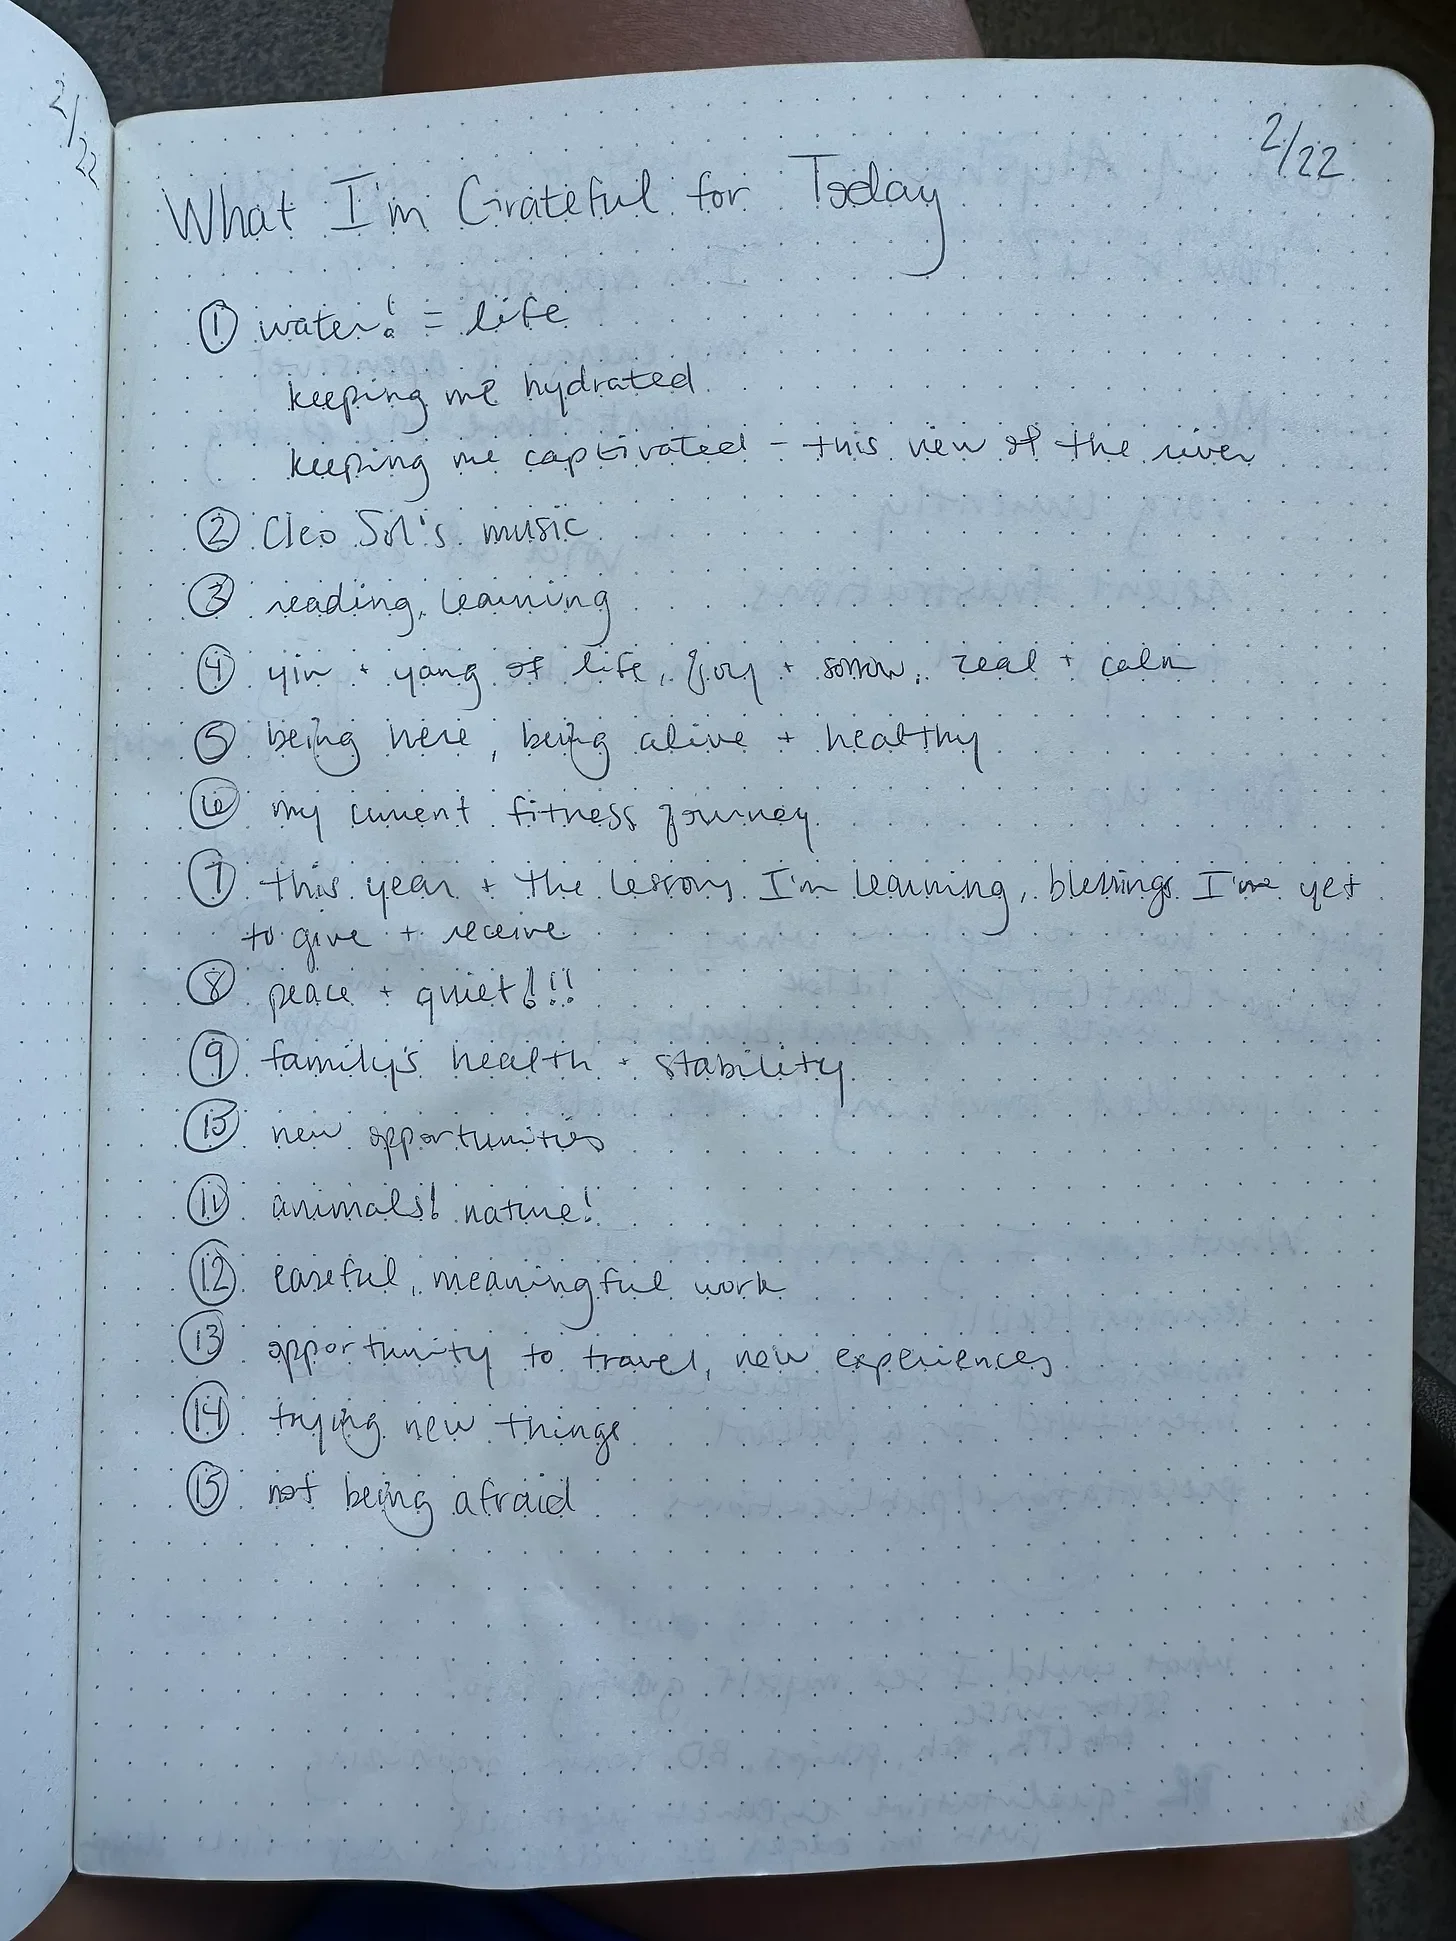 2/22
2/22
What I'm Grateful for Today
① water! = life
keeping me hydrated
keeping me captivated - this view of the river
② Cleo Sol's music
③ reading, learning
④ yin + yang of life, joy + sorrow, zeal + calm
⑤ being here, being alive + healthy
⑥ my current fitness journey
⑦ this year + the lessons I'm learning, blessings I've yet
to give + receive
⑧ peace + quiet!!!
⑨ family's health + stability
⑩ new opportunities
⑪ animals! nature!
⑫ easeful, meaningful work
⑬ opportunity to travel, new experiences
⑭ trying new things
⑮ not being afraid